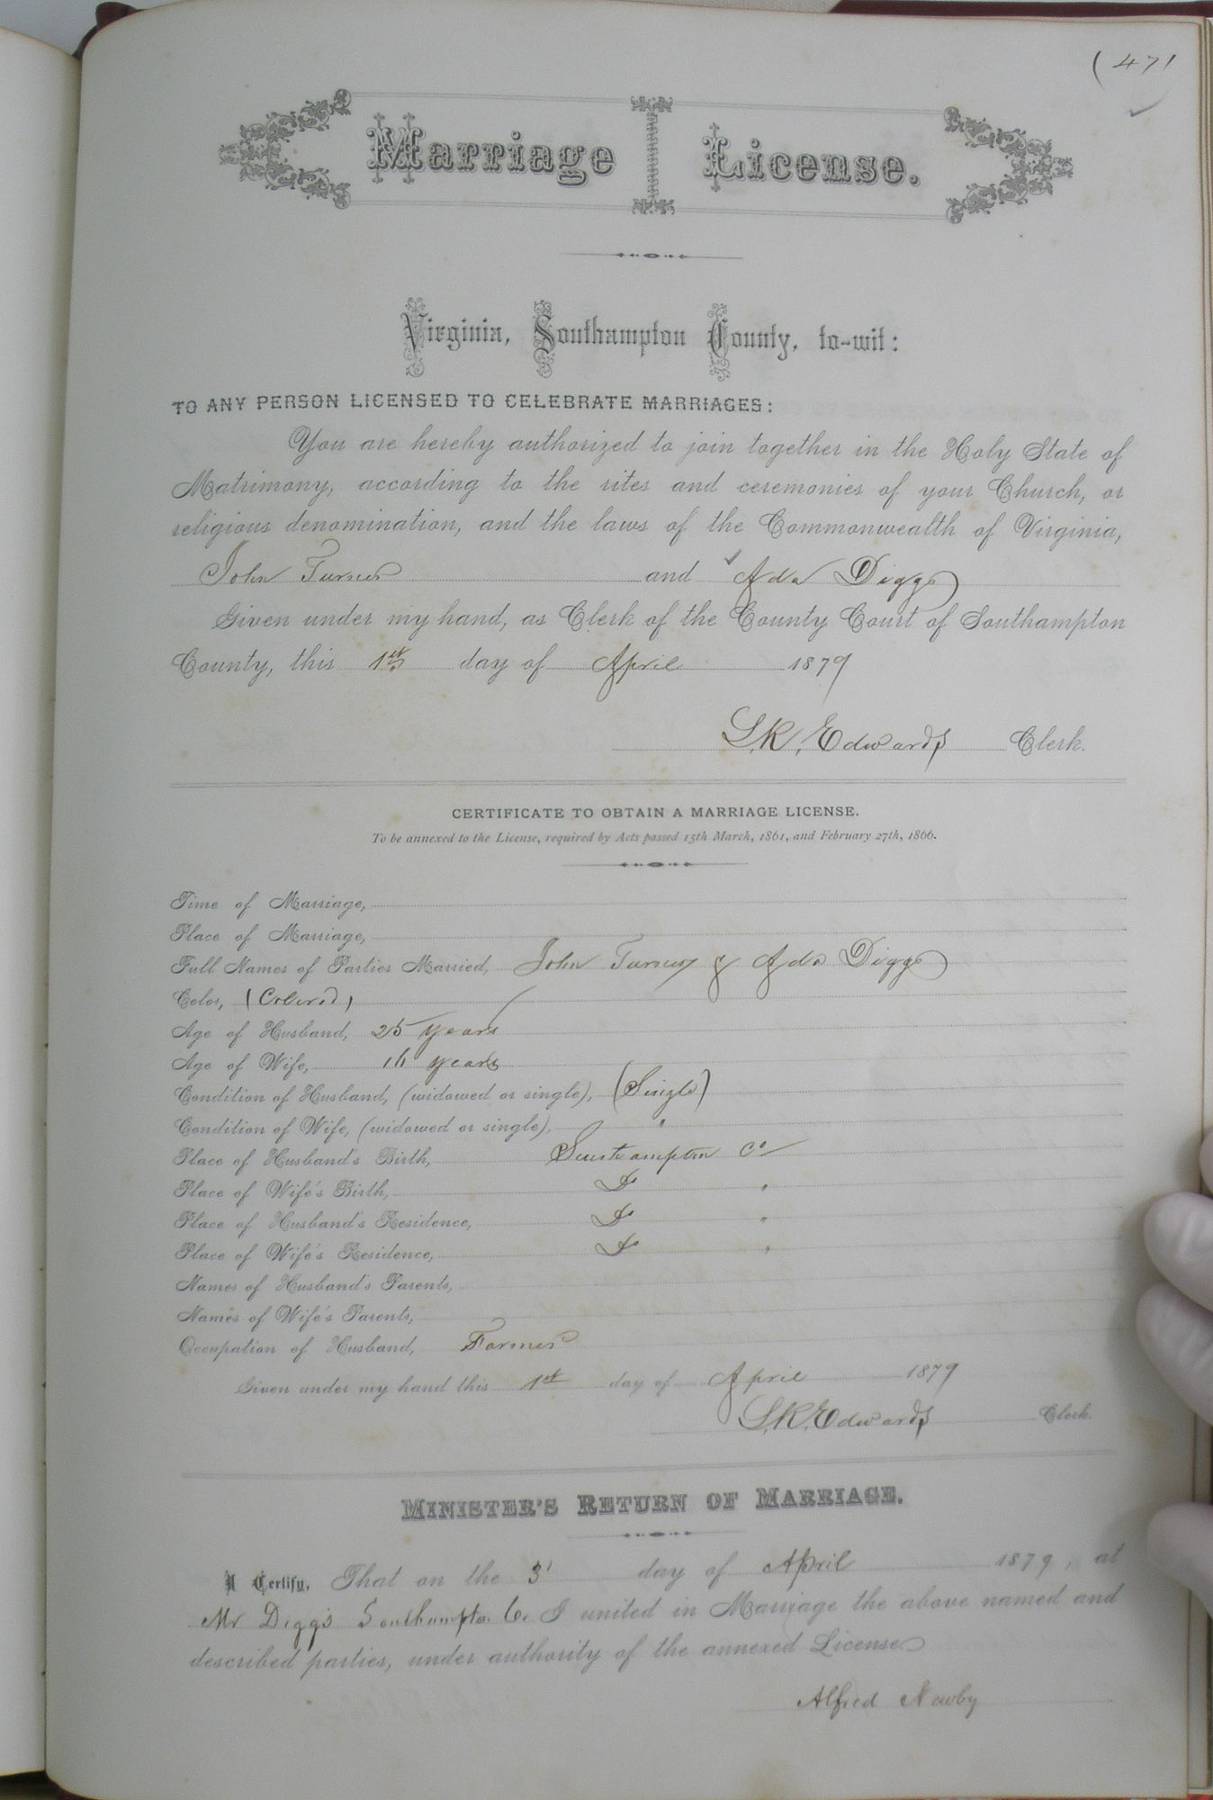 (471
Marriage License.
Virginia, Southampton County, to-wit:
TO ANY PERSON LICENSED TO CELEBRATE MARRIAGES:
You are hereby authorized to join together in the Holy State of
Matrimony, according to the rites and ceremonies of your Church, or
religious denomination, and the laws of the Commonwealth of Virginia,
John Turner and Ada Diggs
Given under my hand, as Clerk of the County Court of Southampton
County, this 1st day of April 1879
L.R. Edwards Clerk.
CERTIFICATE TO OBTAIN A MARRIAGE LICENSE.
To be annexed to the License, required by Acts passed 15th March, 1861, and February 27th, 1866.
Time of Marriage,
Place of Marriage,
Full Names of Parties Married, John Turner & Ada Diggs
Color, (Colored)
Age of Husband, 25 years
Age of Wife, 16 years
Condition of Husband, (widowed or single), (Single)
Condition of Wife, (widowed or single), "
Place of Husband's Birth, Southampton Co
Place of Wife's Birth, Do "
Place of Husband's Residence, Do "
Place of Wife's Residence, Do "
Names of Husband's Parents,
Names of Wife's Parents,
Occupation of Husband, Farmer
Given under my hand this 1st day of April 1879
L.R. Edwards Clerk.
MINISTER'S RETURN OF MARRIAGE.
I Certify, That on the 3 day of April 1879, at
Mr Digg's Southampton Co. I united in Marriage the above named and
described parties, under authority of the annexed License
Alfred Newby